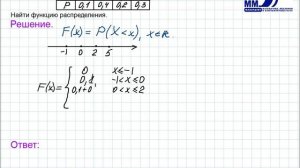 P 0,1 0,4 0,2 0,3
Найти функцию распределения.
ММ
Решение.
F(x) = P(X<x), x∈R
-1 0 2 5
0 x≤-1
0,1 -1<x≤0
F(x)= 0,1+0 0<x≤2
Ответ: